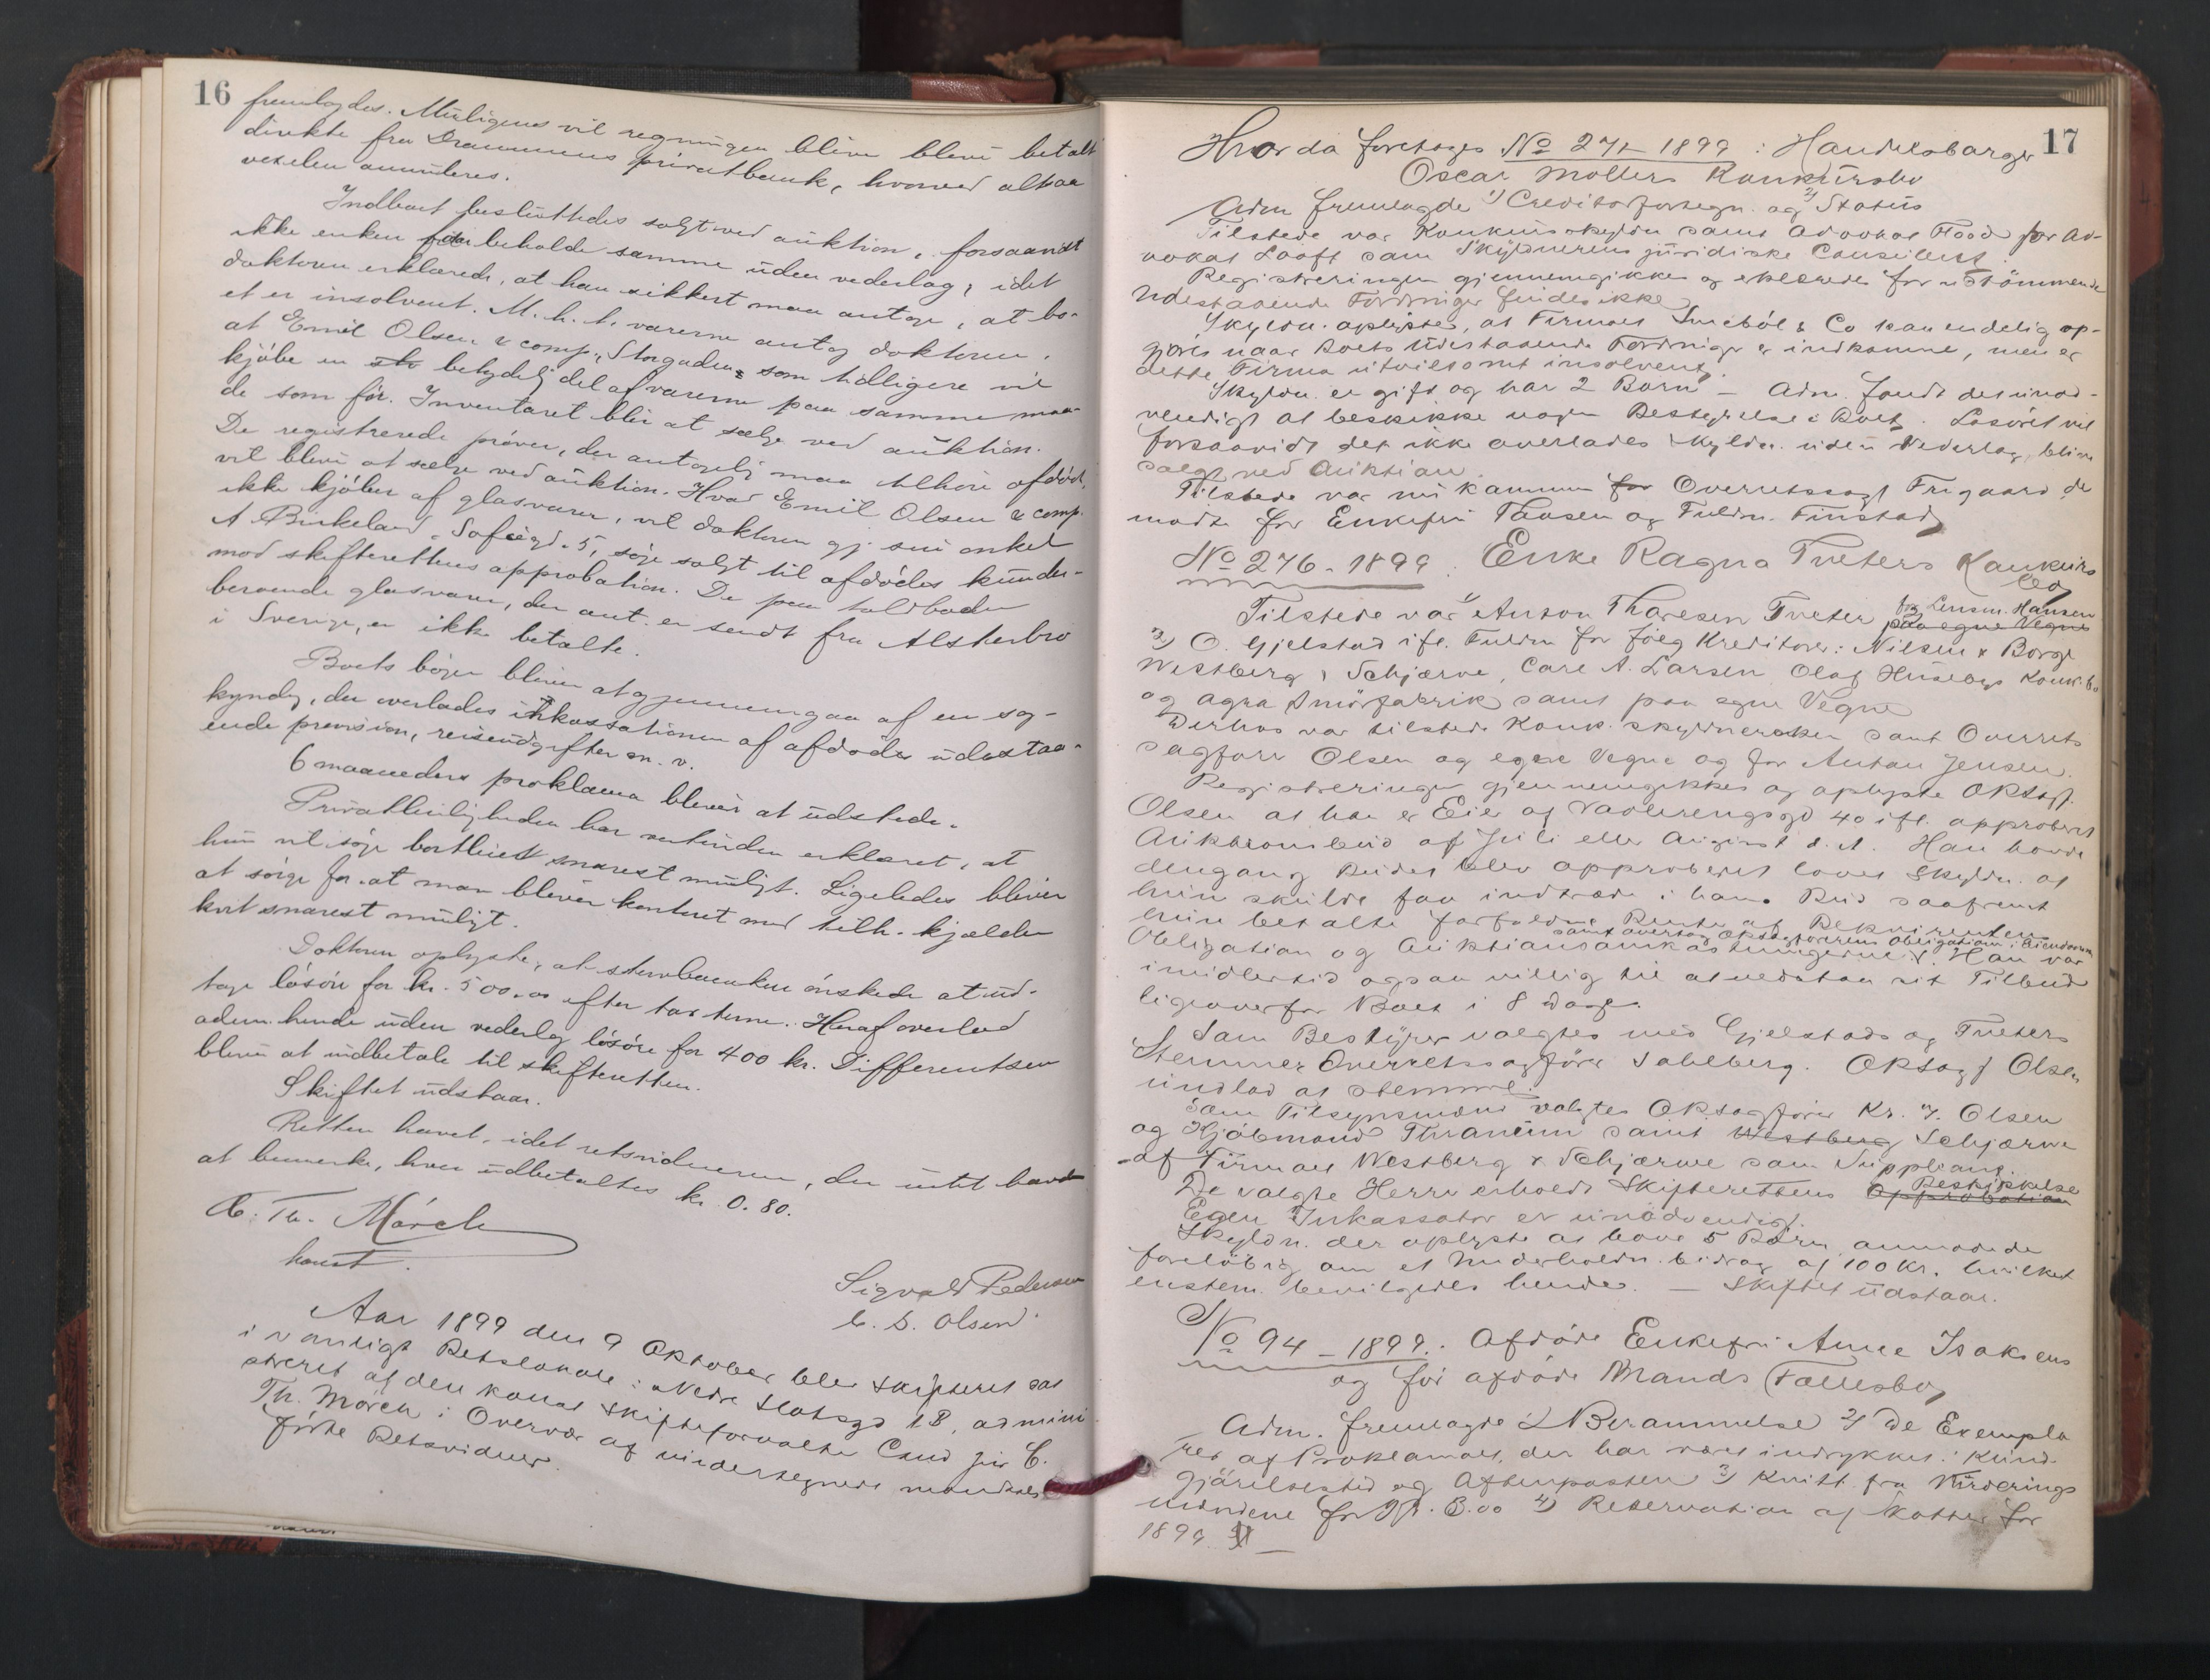 16
fremlagdes. Muligens vil regningen blive bleve betalt
direkte fra Drammens privatbank, hvorved altsaa
vexelen annuleres.
Indboet besluttedes solgt ved auktion, forsaavidt
ikke enken faar beholde samme uden vederlag, idet
doktoren erklærede, at han sikkert maa antage, at bo-
et er insolvent. M. h. t. varerne antog doktoren,
at Emil Olsen & comp., Storgaden, som tidligere vil
kjöbe en betydelig del af varerne paa samme maa-
de som för. Inventaret blir at sælge ved auktion.
De registrerede pröver, der antagelig maa tilhöre afdöde,
vil bleve at sælge ved auktion. Hvad Emil Olsen & comp.
ikke kjöber af glasvarer, vil doktoren gj. sin onkel
A Birkeland, Sofiegd. 5, söge solgt til afdödes kunder
mod skifterettens approbation. De paa toldboden
beroende glasvarer, der ant. er sendt fra Alsterbro
i Sverige, er ikke betalte.
Boets böger bliver at gjennemgaa af en sag-
kyndig, der overlades inkassationen af afdödes udestaa-
ende provision, reiseudgifter m. v.
6 maaneders proklama bliver at udstede.
Privatleiligheden har enkefruen erklæret, at
hun vil söge bortleiet snarest muligt. Ligeledes bliver
at sörge for at man bliver kontoret med tilh. kjælder
kvit snarest muligt.
Doktoren oplyste, at stervboenken önskede at ud-
tage lösöre for kr. 500.00 efter taxterne. Heraf overlod
adm. hende uden vederlag lösöre for 400 kr. Differentsen
bliver at indbetale til skifteretten.
Skiftet udstaar.
Retten hævet, idet retsvidnerne, der intet havde
at bemerke, hver udbetaltes kr. 0.80.
C. Th. Mörch
konst.
Sigvald Pedersen
C. S. Olsen
Aar 1899 den 9 Oktober blev Skifteret sat
i vanligt Retslokale: Nedre Slotsgd 1B, admini
streret af den konst Skifteforvalter Cand jur C.
Th. Mörch i Overvær af undertegnede mandtals
förte Retsvidner.
17
Hvorda foretoges No 271-1899: Handelsborger
Oscar Mollers Konkursbo
Adm fremlagde 1) Creditorfortegn. og 2) Status
Tilstede var Konkursskyldn samt Advokat Hood for Ad-
vokat Looft som Skyldnerens juridiske Consulent.
Registreringen gjennemgikkes og erklæredes for udtömmende
Udestaaende Fordringer findes ikke
Skyldn. oplyste, at Firmaet & Co kan endelig op-
gjöres naar Boets Udestaaende Fordringer er indkomne, men er
dette Firma utvilsomt insolvent.
Skyldn. er gift og har 2 Born – Adm. fandt det unöd-
vendigt at beskikke nogen Bestyrelse i Boet. Lösöret vil
forsaavidt det ikke overlades Skyldn. uden Vederlag, blive
solgt ved Auktion.
Tilstede var nu kommen for Overretssagf Frigaard der
mödte for Enkefru Paasen og Fuldm. Finstad
No 276-1899. Enke Ragna Tveters Konkurs
bo
Tilstede var 1) Anton Thoresen Tveter for Lensm. Hansen
paa egne Vegne
2) O. Gjelstad ifl. Fuldm for fölg Kreditorer: Nilsen & Borge
Westberg & Schjærve, Carl A. Larsen Olaf Husebys Konk.bo
og Agra Smörfabrik samt paa egne Vegne
Derhos var tilstede Konk. skyldnersken samt Overrets
sagförer Olsen og egne Vegne og for Anton Jensen.
Registreringen gjennemgikkes og oplyste ORsagf.
Olsen at han er Eier af Vaalerengsgd 40 ifl. approberet
Auktionsbud af Juli eller August d. A. Han havde
dengang Budet blev approberet lovet Skyldn. at
hun skulde faa indtræde i hans Bud saafremt
hun betalte forfaldne Renter af Rekvirentens
samt overtog ORsagförerens Obligation i Eiendommen
Obligation og Auktionsomkostningerne. Han var
imidlertid ogsaa villig til at vedstaa sit Tilbud
ligeoverfor Boet i 8 Dage.
Som Bestyrer valgtes med Gjelstads og Tveters
Stemmer Overretssagförer Sahlberg. ORsagf Olsen
undlod at stemme.
Som Tilsynsmænd valgtes ORsagförer Kr. F. Olsen
og Kjöbmand Thranum samt Westberg Schjærve
af Firmaet Westberg & Schjærve som Suppleant.
De valgte Herrer erholdt Skifterettens Beskikkelse
Approbation
Egen Inkassator er unödvendigt.
Skyldn. der oplyste at have 5 Börn, anmodede
forelöbig om et Underholdn. bidrag af 100 Kr. hvilket
enstem. bevilgedes hende. – Skiftet udstaar.
No 94 – 1899. Afdöde Enkefru Anne Isaksens
og för afdöde Mands Fællesbo,
Adm. fremlagde 1) Berammelse 2) De Exempla
rer af Proklamaet, der har været indrykket i Kund-
gjörelsestid og Aftenposten 3) Kvitt. fra Vurderings
mændene for Kr. 8.00 4) Reservation af Skatter for
1899